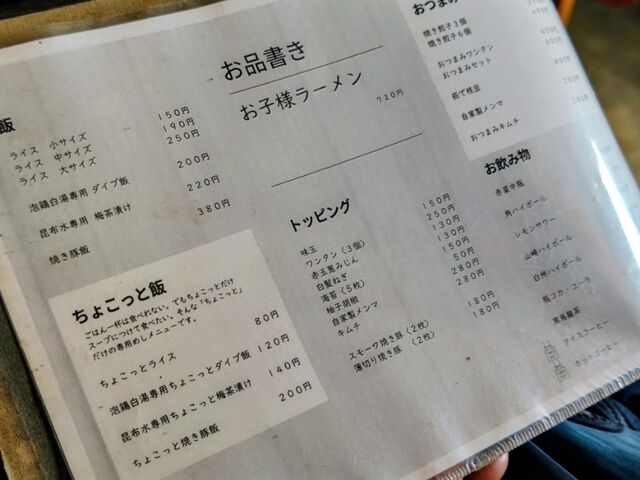 飯
ライス 小サイズ 150円
ライス 中サイズ 190円
ライス 大サイズ 250円
泡鶏白湯専用 ダイブ飯 200円
昆布水専用 梅茶漬け 220円
焼き豚飯 380円
ちょこっと飯
ごはん一杯は食べれない、でもちょこっとだけ
スープにつけて食べたい。そんな「ちょこっと」
だけの専用めしメニューです。
ちょこっとライス 80円
泡鶏白湯専用ちょこっとダイブ飯 120円
昆布水専用ちょこっと梅茶漬け 140円
ちょこっと焼き豚飯 200円
お品書き
お子様ラーメン 720円
トッピング
味玉
ワンタン（3個）
赤玉葱みじん
白髪ねぎ
海苔（5枚）
柚子胡椒
自家製メンマ
キムチ
スモーク焼き豚（2枚）
薄切り焼き豚（2枚）
150円
250円
130円
150円
50円
280円
180円
180円
おつまみ
焼き餃子3個
焼き餃子6個
おつまみワンタン
おつまみセット
茹で枝豆
自家製メンマ
おつまみキムチ
お飲み物
赤星中瓶
角ハイボール
レモンサワー
山崎ハイボール
白州ハイボール
瓶コカ・コーラ
黒烏龍茶
アイスコーヒー
ホットコーヒー